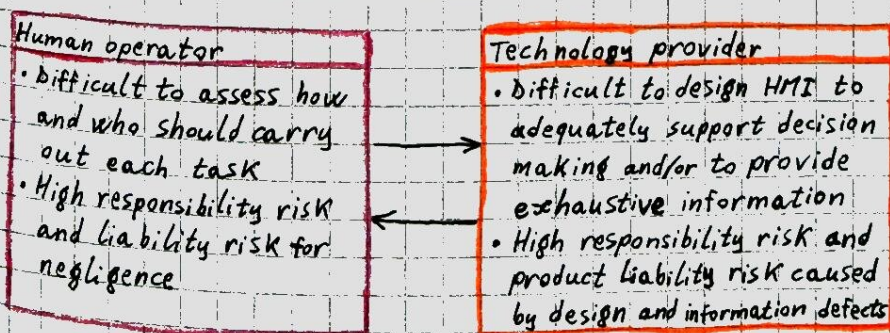 Human operator
• Difficult to assess how
and who should carry
out each task
• High responsibility risk
and liability risk for
negligence
Technology provider
• Difficult to design HMI to
adequately support decision
making and/or to provide
exhaustive information
• High responsibility risk and
product liability risk caused
by design and information defects